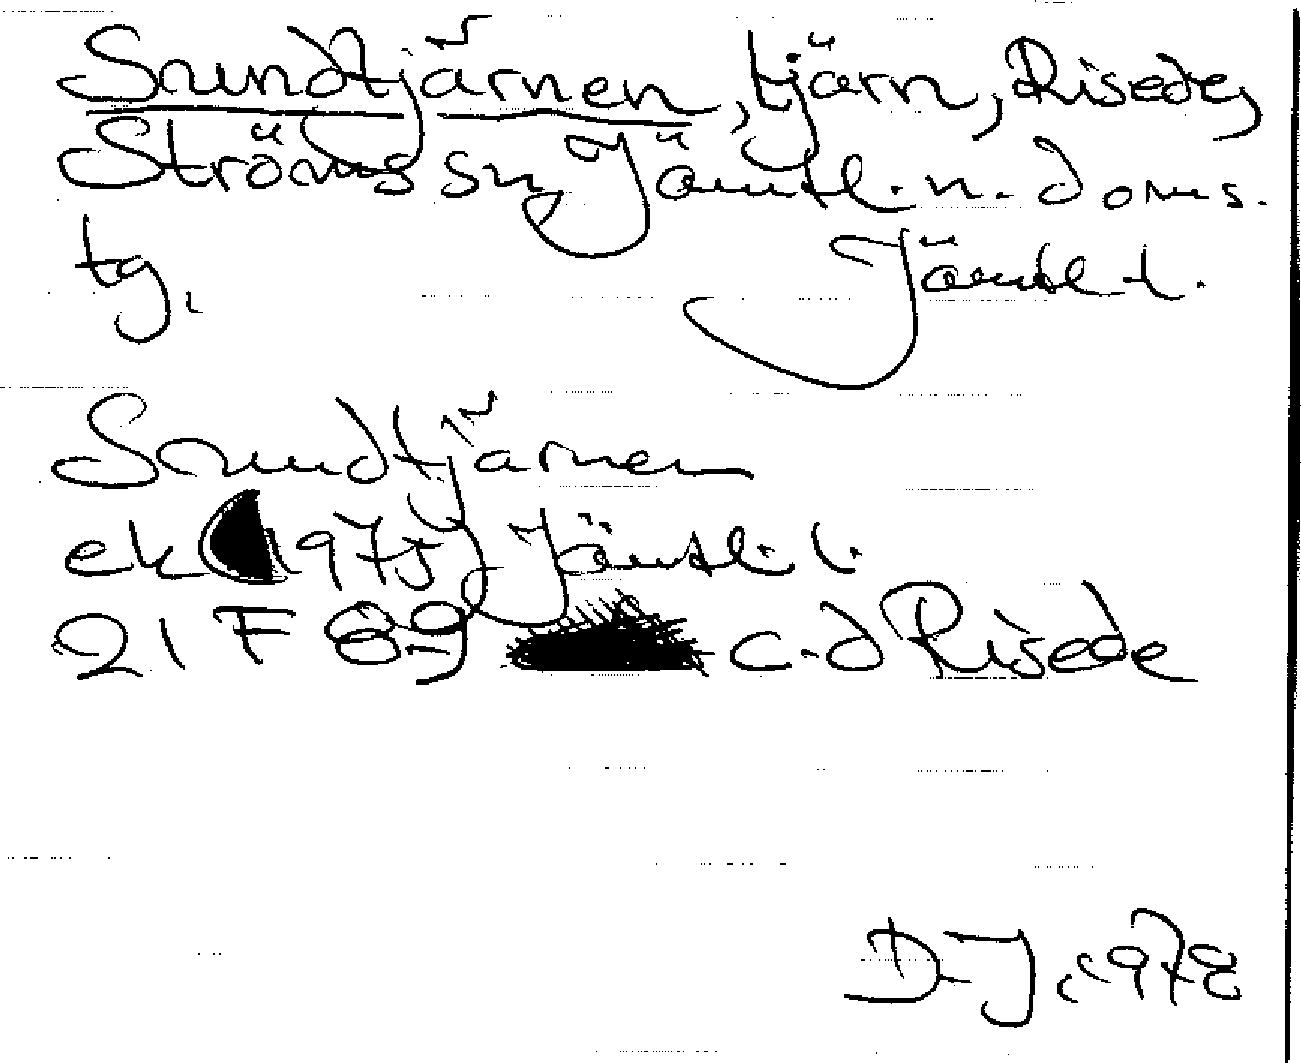 Sundtjärnen, tjärn, Risede,
Ströms sn, Jämtl. n. doms.
tg. Jämtl. l.
Sundtjärnen
ek 1975 Jämtl. l.
21 F 8-9 c-d Risede
D-J 1978